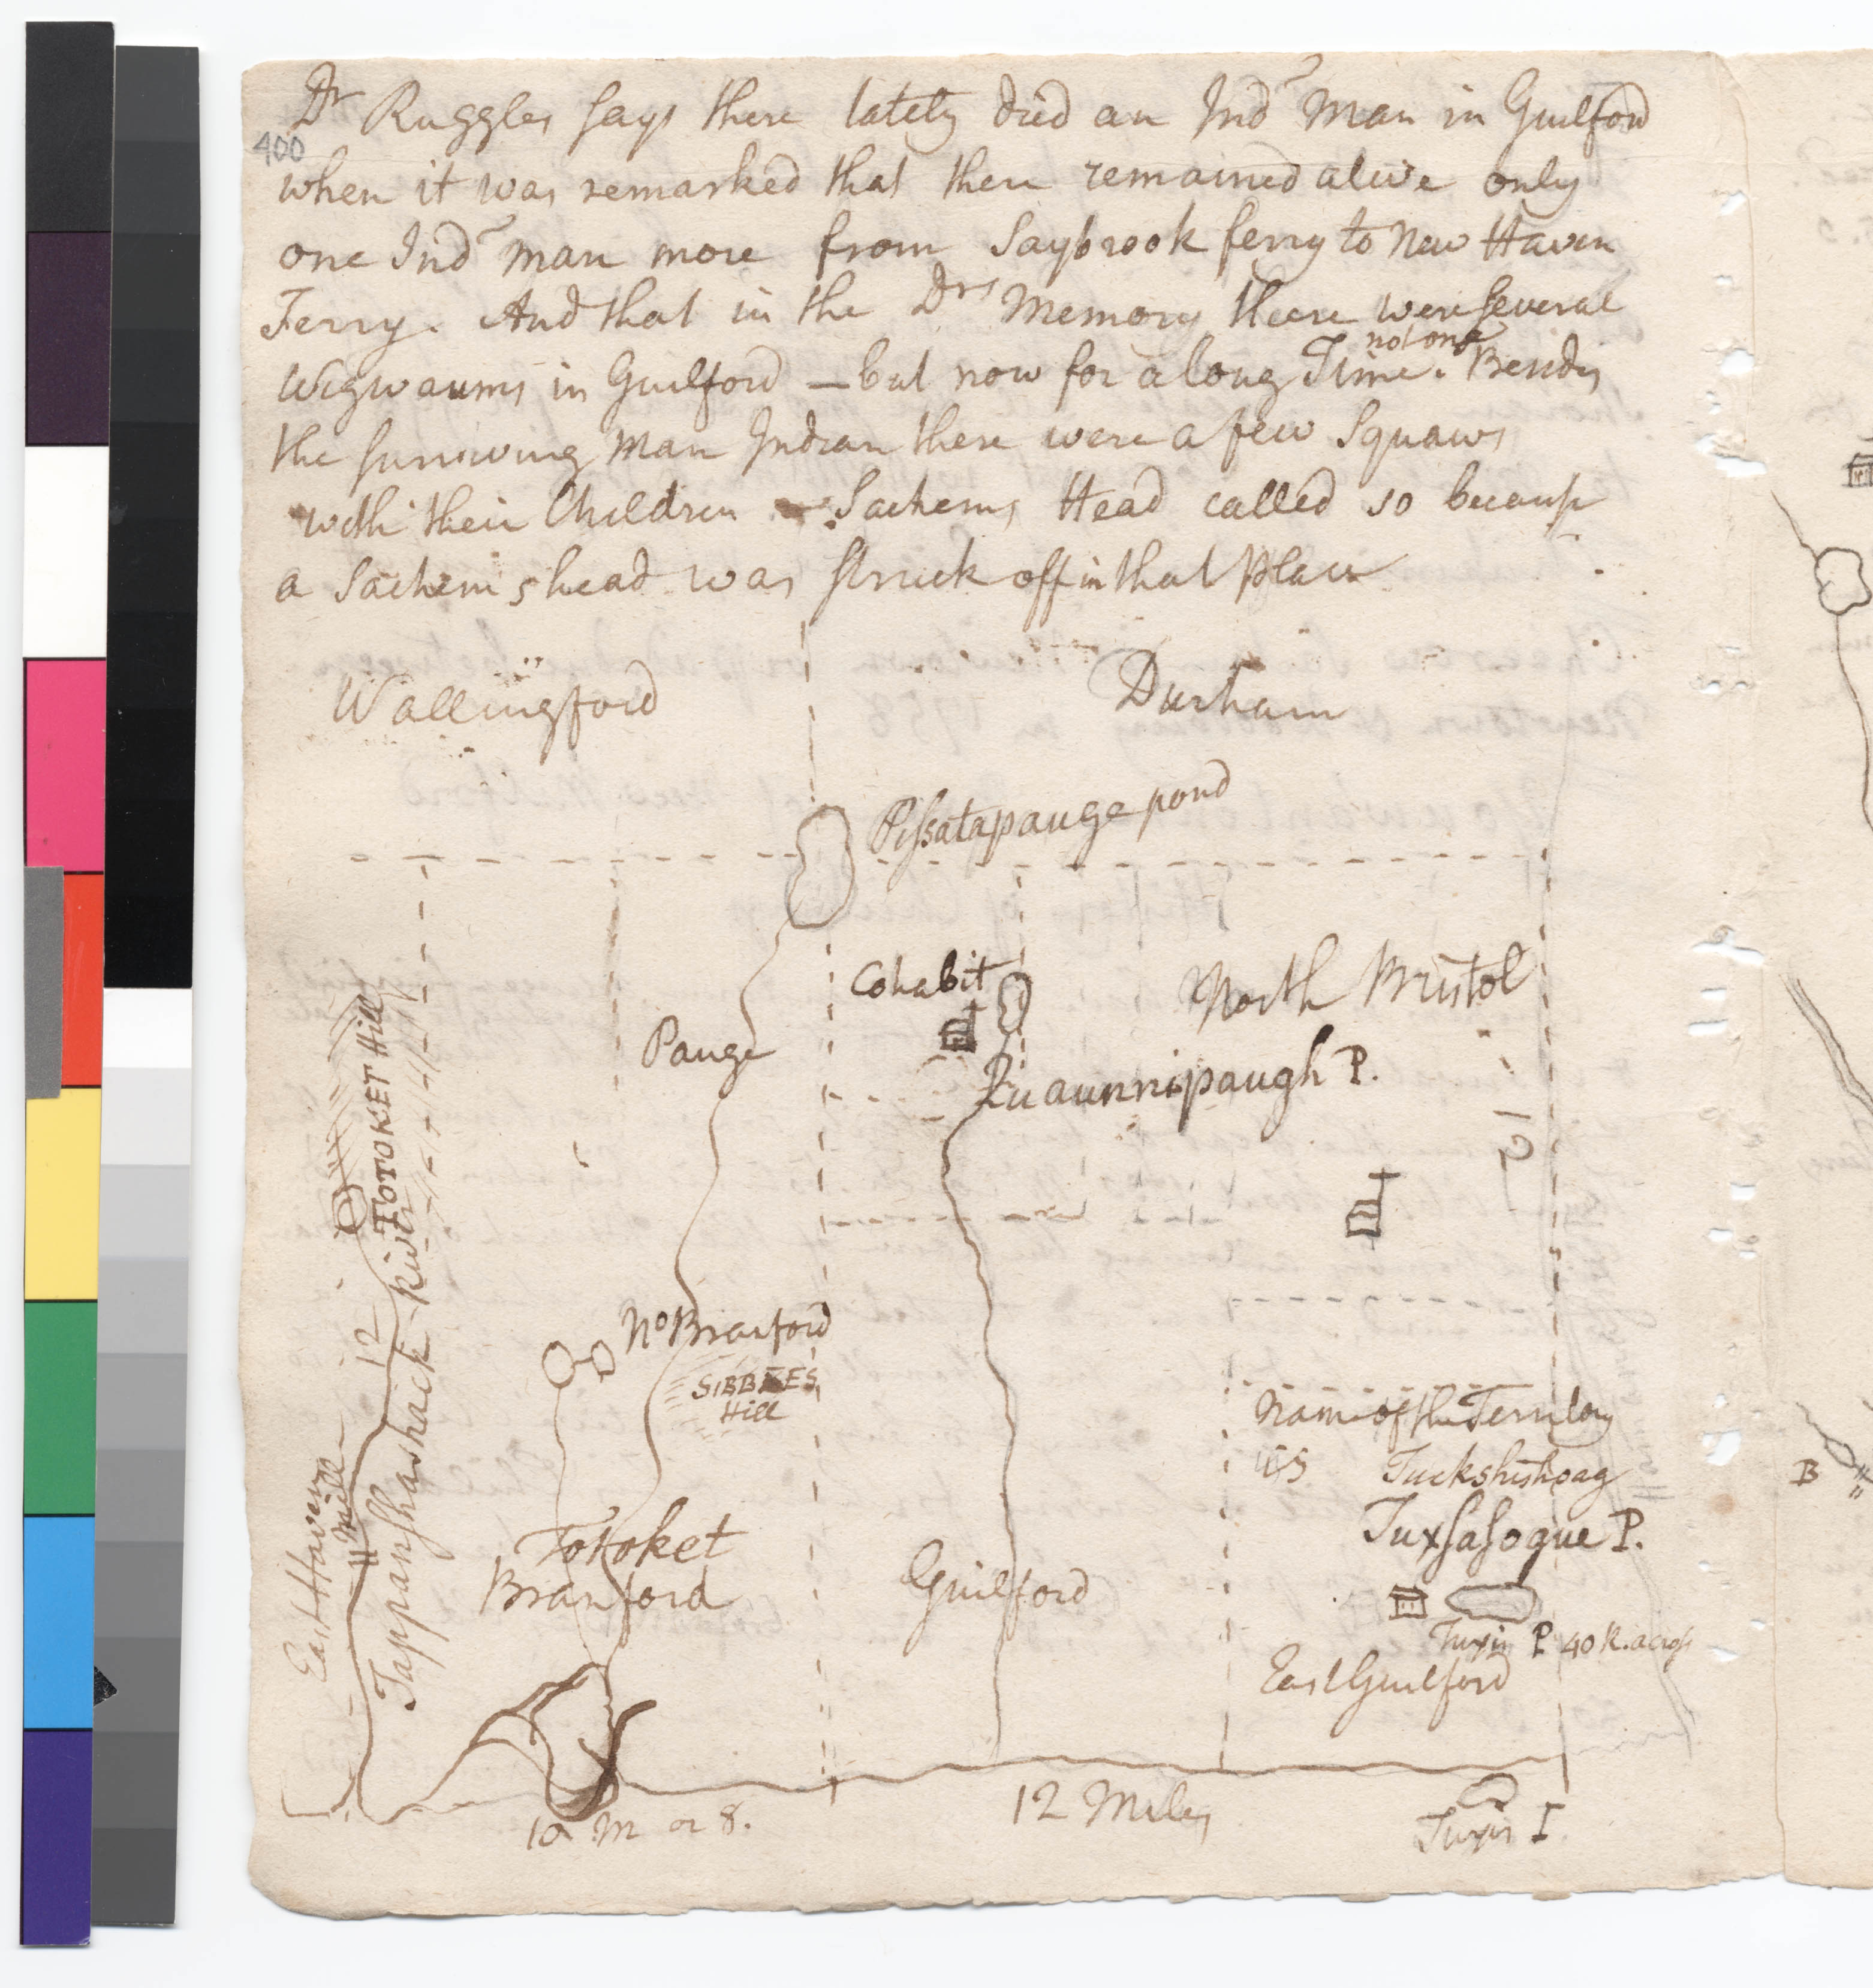 Dr Ruggles says there lately died an Indn Man in Guilford
400
when it was remarked that there remained alive only
one Indn man more from Saybrook ferry to New Haven
Ferry. And that in the Drs Memory there were several
not one
Wigwaums in Guilford — but now for a long Time. Besides
the surviving Man Indian there were a few Squaws
with their Children Sachems Head called so because
a Sachems head was struck off in that Place
Wallingford
Durham
Pissatapauge pond
Cohabit
North Bristol
Pauge
Quaunnipaugh P.
12
TOTOKET Hill
Tappanshashack River
12
No Branford
SIBBIES
Hill
Name of the Territory
is Tuckshishoag
Tuxsasogue P.
East Haven
Mill
Totoket
Branford
Guilford
Tuxis P 40 R. across
East Guilford
10 M or 8.
12 Miles
Tuxis I
B